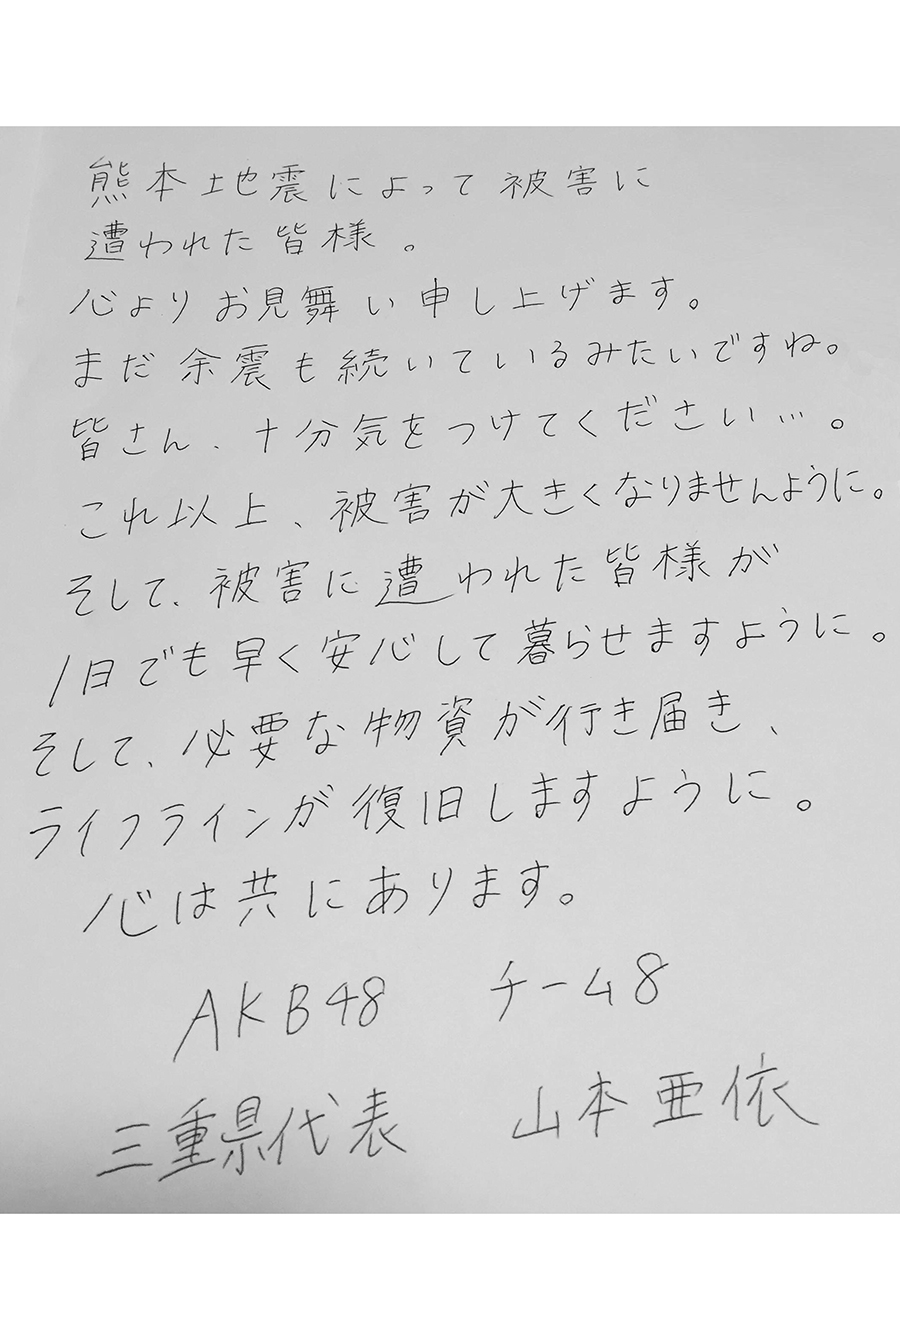 熊本地震によって被害に
遭われた皆様。
心よりお見舞い申し上げます。
まだ余震も続いているみたいですね。
皆さん、十分気をつけてください…。
これ以上、被害が大きくなりませんように。
そして、被害に遭われた皆様が
1日でも早く安心して暮らせますように。
そして、必要な物資が行き届き、
ライフラインが復旧しますように。
心は共にあります。
AKB48 チーム8
三重県代表 山本亜依